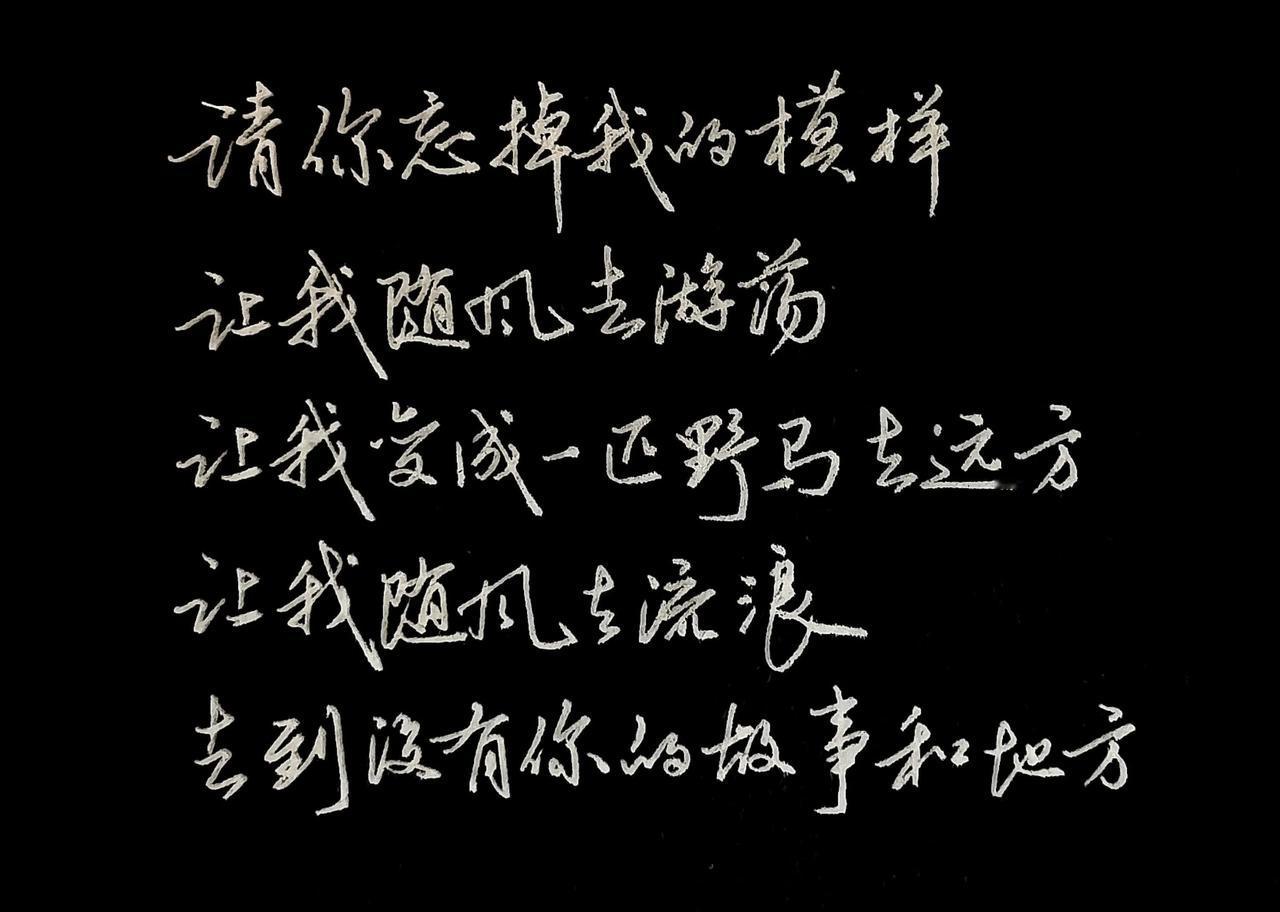 请你忘掉我的模样
让我随风去游荡
让我变成一匹野马去远方
让我随风去流浪
去到没有你的故事和地方